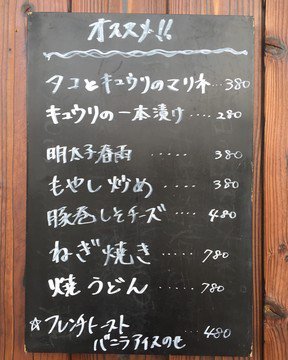 オススメ!!
タコとキュウリのマリネ…380
キュウリの一本漬け‥‥280
明太子春雨 ‥‥‥ 380
もやし炒め ‥‥‥ 380
豚巻しそチーズ‥‥480
ねぎ焼き ‥‥‥ 780
焼うどん ‥‥‥ 780
☆フレンチトースト
バニラアイスのせ ‥‥480